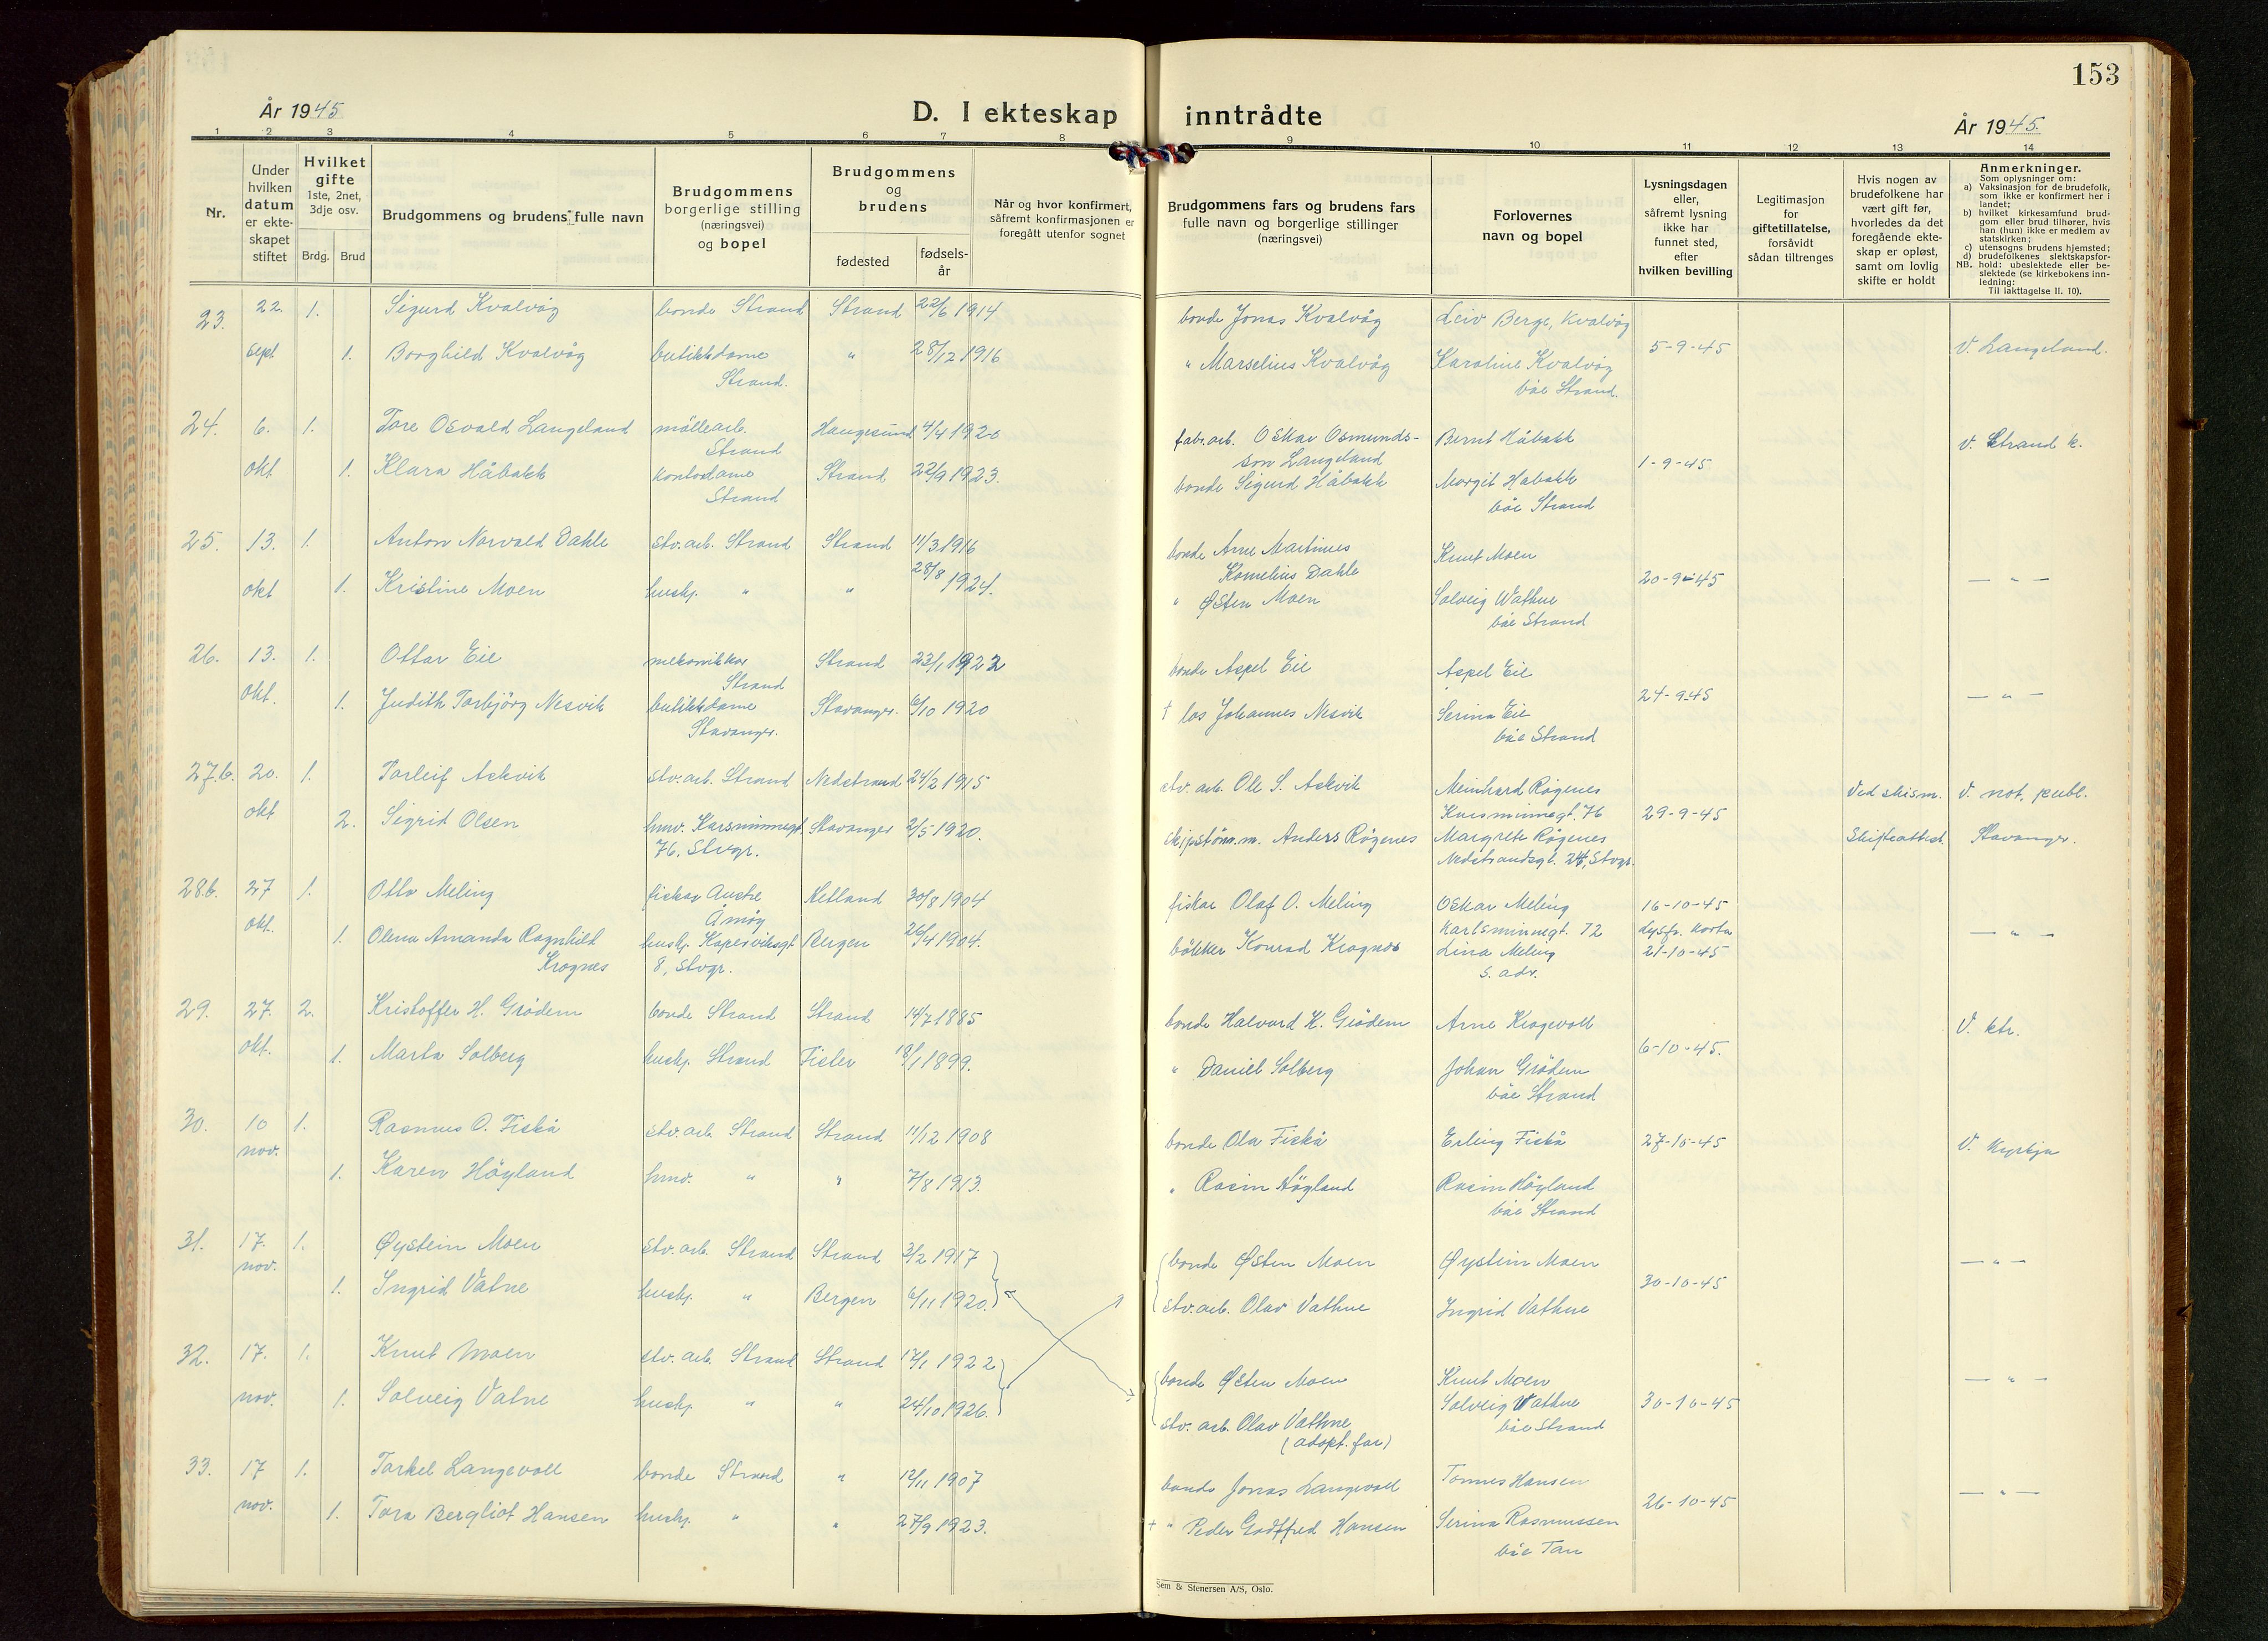 153
År 1945
D. I ekteskap inntrådte
År 1945.
1 2 3 4 5 6 7 8 9 10 11 12 13 14
Nr.
Under
hvilken
datum
er ekte-
skapet
stiftet
Hvilket
gifte
1ste, 2net,
3dje osv.
Brdg. Brud
Brudgommens og brudens fulle navn
Brudgommens
borgerlige stilling
(næringsvei)
og bopel
Brudgommens
og
brudens
fødested
fødsels-
år
Når og hvor konfirmert,
såfremt konfirmasjonen er
foregått utenfor sognet
Brudgommens fars og brudens fars
fulle navn og borgerlige stillinger
(næringsvei)
Forlovernes
navn og bopel
Lysningsdagen
eller,
såfremt lysning
ikke har
funnet sted,
efter
hvilken bevilling
Legitimasjon
for
giftetillatelse,
forsåvidt
sådan tiltrenges
Hvis nogen av
brudefolkene har
vært gift før,
hvorledes da det
foregående ekte-
skap er opløst,
samt om lovlig
skifte er holdt
Anmerkninger.
Som oplysninger om:
a) Vaksinasjon for de brudefolk,
som ikke er konfirmert her i
landet;
b) hvilket kirkesamfund brud-
gom eller brud tilhører, hvis
han (hun) ikke er medlem av
statskirken;
c) utensogns brudens hjemsted;
d) brudefolkenes slektskapsfor-
NB. hold: ubeslektede eller be-
slektede (se kirkebokens inn-
ledning:
Til iakttagelse II. 10).
23. 22. 1. Sigurd Kvalvåg bonde Strand Strand 22/6 1914 bonde Jonas Kvalvåg Leiv Berge, Kvalvåg
sept 1. Borghild Kvalvåg butikkdame " 28/12 1916 " Marselius Kvalvåg Karoline Kvalvåg 5-9-45 V. Langeland.
Strand. båe Strand.
24. 6. 1. Tore Osvald Langeland møllearb. Haugesund 4/4 1920 fabr.arb. Oskar Osmunds- Bernt Håbakk V. Strand k.
Strand son Langeland
okt 1. Klara Håbakk kontordame Strand 22/9 1923. bonde Sigurd Håbakk Margit Håbakk 1-9-45
Strand båe Strand
25. 13. 1. Anton Norvald Dahle stv.arb. Strand Strand 11/3 1916 bonde Arne Martinus Knut Moen
Kornelius Dahle
okt 1. Kristine Moen hushj. " " 28/8 1924. " Østen Moen Solveig Wathne 20-9-45 — " —
båe Strand
26. 13. 1. Ottar Eie mekanikkar Strand 23/1 1922 bonde Aspel Eie Aspel Eie
Strand
okt. 1. Judith Torbjörg Nesvik butikkdame Stavanger. 6/10 1920 † los Johannes Nesvik Serina Eie 24-9-45 — " —
Stavanger. båe Strand
27.b. 20. 1. Torleif Askvik stv.arb. Strand Nedstrand 24/2 1915 stv. arb. Ole S. Askvik Meinhard Rögenes Ved skism. V. not. publ.
okt 2. Sigrid Olsen hmv. Karsminnegt. Stavanger 2/5 1920. skipstømr.m. Anders Rögenes Karsminnegt. 76 29-9-45 Skifteattest Stavanger.
76. Stvgr. Margrete Rögenes
Nedstrandsgt. 24, Stvgr.
28.b. 27 1. Otto Meling fiskar Austre Hetland 30/8 1904 fiskar Olaf O. Meling Oskar Meling 16-10-45
Åmöy Karlsminnegt. 72
okt. 1. Olena Amanda Ragnhild hushj. Kopervikgt Bergen 26/4 1904. bökker Konrad Krognes Lina Meling 21-10-45 — " —
Krognes 8, Stvgr. s. adr.
29. 27. 2. Kristoffer H. Grödem bonde Strand Strand 14/7 1885 bonde Halvard K. Grödem Arne Krogevoll V. ktr.
okt. 1. Marta Solberg hushj. Strand Fister 18/1 1899. " Daniel Solberg Johan Grödem 6-10-45.
båe Strand
30. 10 1. Rasmus O. Fiskå stv.arb. Strand Strand 11/12 1908 bonde Ola Fiskå Erling Fiskå 27-10-45 V. Kyrkja
nov. 1. Karen Höyland hmv. " " 7/8 1913. " Rasin Höyland Rasin Höyland
båe Strand
31. 17. 1. Øystein Moen stv.arb. Strand Strand 3/2 1917 bonde Østen Moen Øystein Moen — " —
nov. 1. Ingrid Vatne hushj. " Bergen 6/11 1920. stv.arb. Olav Vathne Ingrid Vathne 30-10-45
32. 17. 1. Knut Moen stv. arb. Strand Strand 17/1 1922 bonde Østen Moen Knut Moen — " —
nov. 1. Solveig Vatne hushj. " " 24/10 1926. stv. arb. Olav Vathne Solveig Vathne 30-10-45
(adopt. far) båe Strand
33. 17 1. Torkel Langevoll bonde Strand " 12/11 1907 bonde Jonas Langevoll Tonnes Hansen
nov. 1. Tora Bergliot Hansen hushj. " " 27/9 1923. † " Peder Godtfred Hansen Serina Rasmussen 26-10-45 — " —
båe Tau
Sem & Stenersen A/S, Oslo.